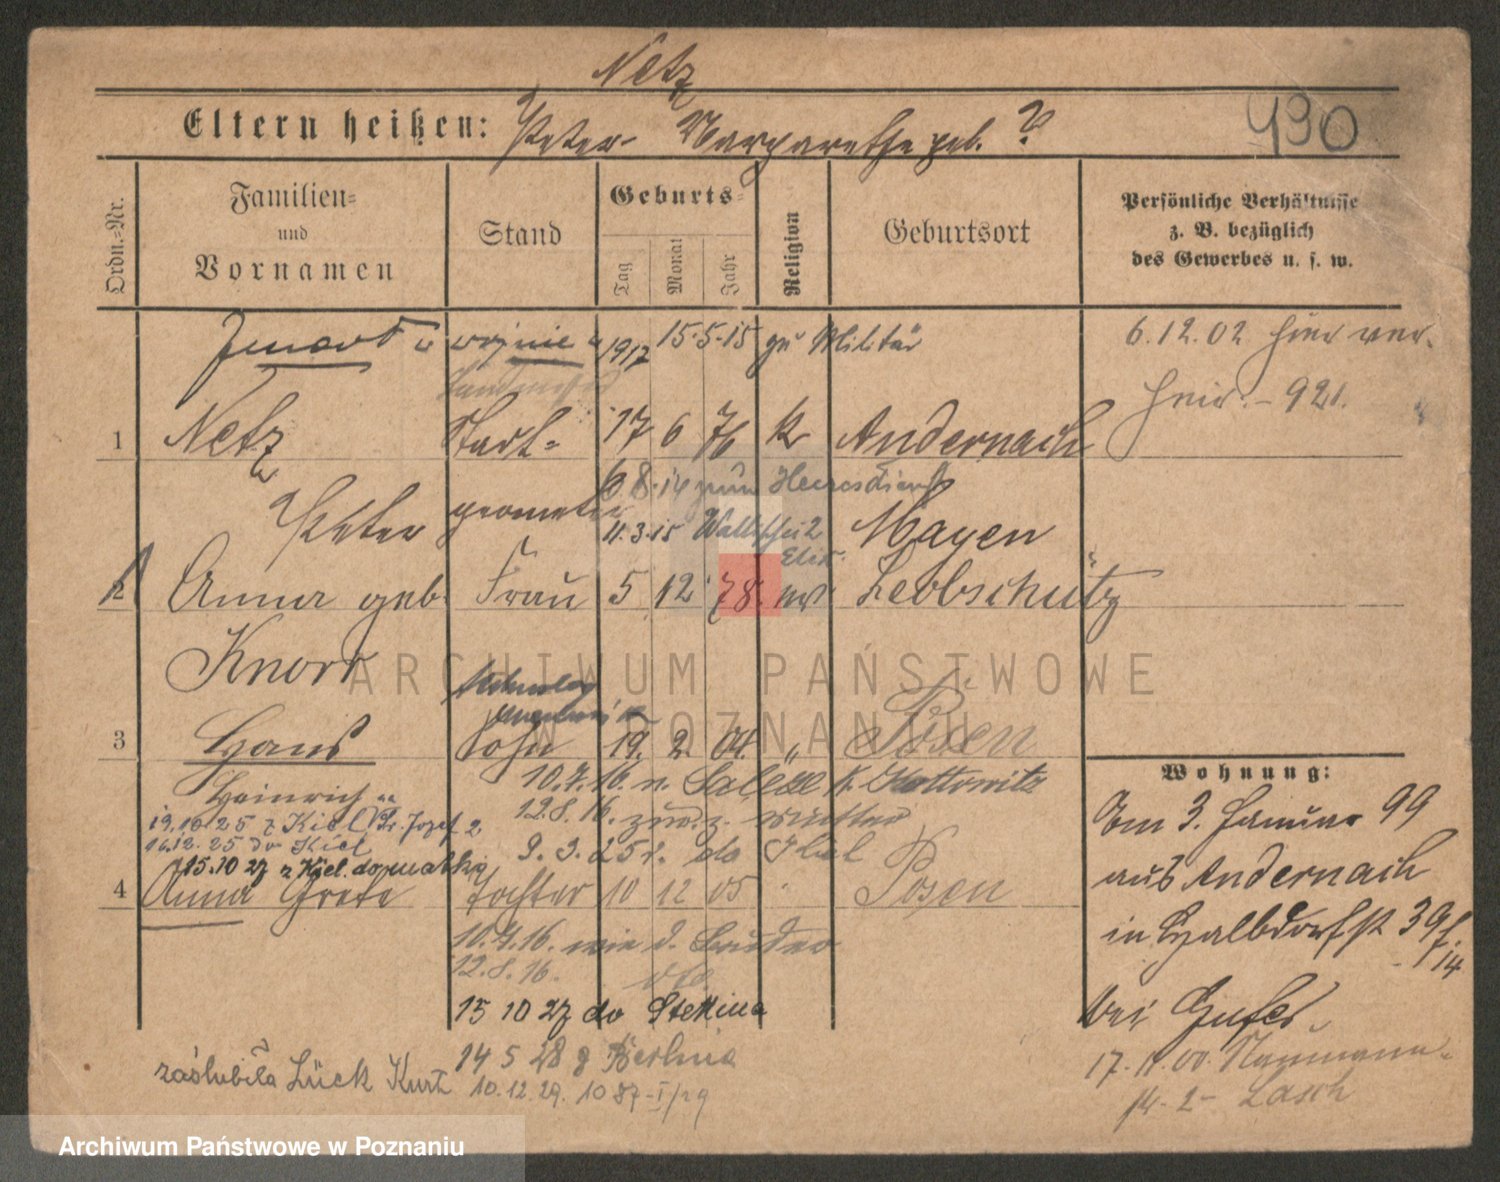 Netz
Eltern heißen: Peter - Margarethe geb. ?
490
Ordn.-Nr.
Familien- und Vornamen
Stand
Geburts-
Tag
Monat
Jahr
Religion
Geburtsort
Persönliche Verhältnisse
z. B. bezüglich
des Gewerbes u. s. w.
1917 15.5.15 zu Militär
6.12.02 hier ver.
heir. - 921.
1 Netz Stadt- 17 6 76 k Andernach
6 8.14 zum Heeresdienst
Peter geometer 11.3.15 Mayen
2 Anna geb. Frau 5 12 78. Leobschütz
Knorr
3 Hans Sohn 19. 2. 04. " Posen
Heinrich
10.7.16. n. k. Kattowitz
12.8.16. zur. z. Mutter
19.10.25 z Kiel Józef 2
16.12.25 do Kiel
9.3.25 do Kiel
15.10 27 z Kiel do matki
4 Anna Grete Tochter 10 12 05 " Posen
10.7.16. wie d. Bruder
12.8.16.
15 10 27 do Stettina
14 5 28 z Berlina
zaślubiła Lück Kurt 10.12.29. 1087-I/29
Wohnung:
Am 3. Januar 99
aus Andernach
in Halbdorfstr 39
bei
17.11.00. Naumann-
str. 2 - Lasch
ARCHIWUM PAŃSTWOWE
W POZNANIU
Archiwum Państwowe w Poznaniu